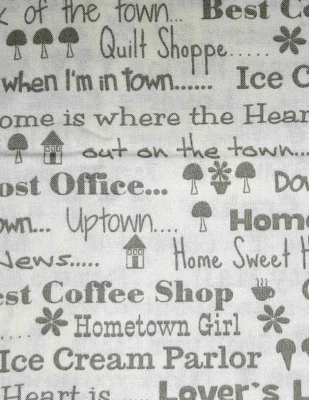 k of the town... Best Co
Quilt Shoppe.....
when I'm in town...... Ice C
ome is where the Hear
out on the town...
ost Office... Dow
own... Uptown.... Home
News..... Home Sweet H
est Coffee Shop
.... Hometown Girl
Ice Cream Parlor
Heart is..... Lover's L